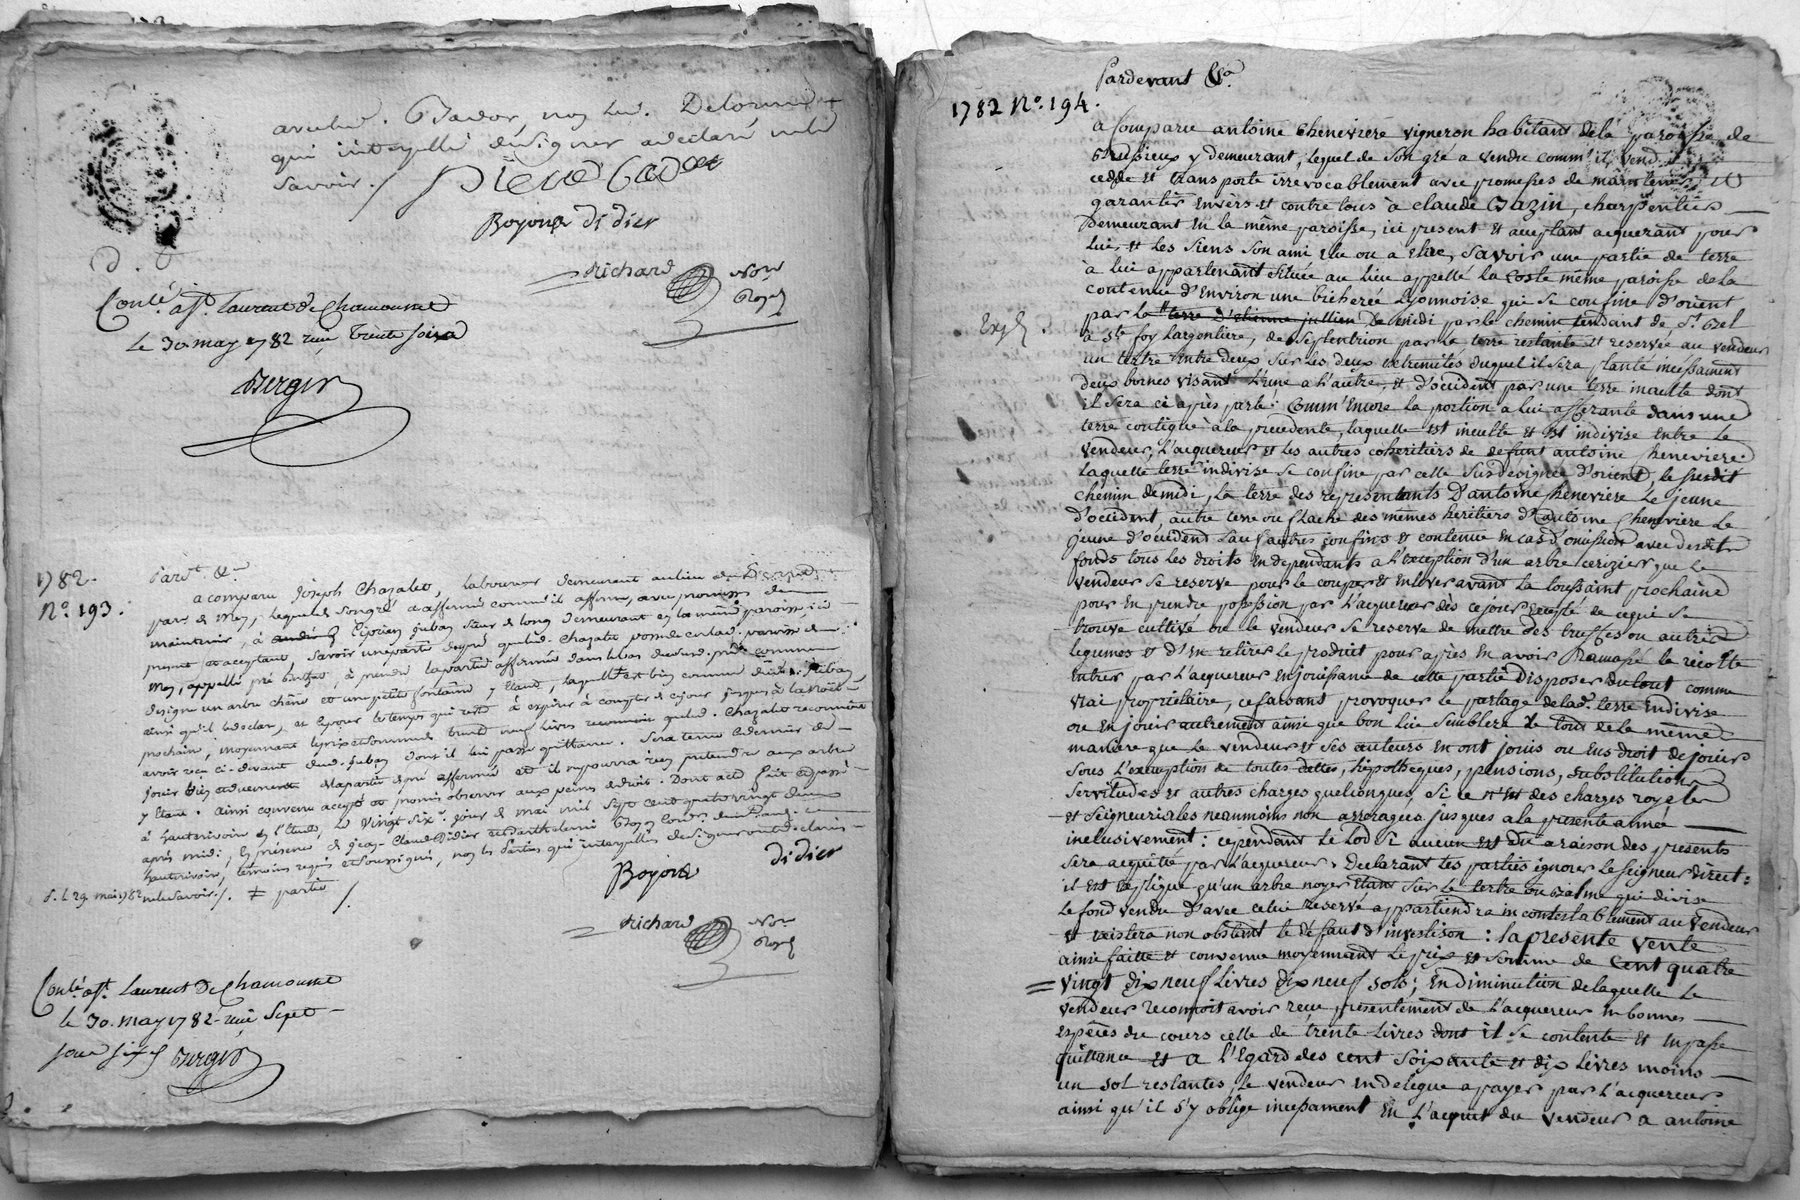 avec led. Bador, non led. Delorme
qui interpellé de signer a declaré ne le
savoir ./.
Pierre Bador
Boyoud didier
Richard Nore
Royal
Conlé. à St. Laurent de Chamousset
le 30 may 1782 reçu trente sols
Berger
1782.
No. 193.
Pard.t &a
a comparu Joseph Chazalet, laboureur demeurant au lieu
par de Mey, lequel de son gré a affermé comme il afferme, avec promesse de
maintenir, à Cyprien Juban sieur de long demeurant en la même paroisse, ici
present et acceptant, savoir une partie du pré que led. Chazalet possede en lad. paroisse de
Mey, appellé pré, à prendre la partie affermée dans le bas dud. pré, comme
designe un arbre chêne et une petite fontaine y etant, laquelle est bien connue dud. Juban
ainsi qu'il le declare, et ce pour le tems qui reste à expirer à compter de ce jour jusques à la Noel
prochaine, moyennant le prix et somme de trente neuf livres reconnu que led. Chazalet reconnoit
avoir reçu ci-devant dud. Juban dont il lui passe quittance. Sera tenu ce dernier de
jouir bien et duement de la partie de pré affermée et il ne pourra rien pretendre aux arbres
y etant. Ainsi convenu accepté et promis observer aux peines de droit. Dont acte fait et passé
à hauterivoire en l'étude, le vingt six.e jour de mai mil sept cent quatre vingt deux
après midi, en presence de Jean-Claude Didier et Barthelemi Boyoud
hauterivoire, temoins requis et soussignés, non les parties qui interpellées de signer ont declaré
S. L 29. mai 1782 ne le savoir ./. ‡ partie /.
Boyoud didier
Richard Nore
Royal
Conlé. à St. Laurent de Chamousset
le 30. may 1782 - reçu sept
sous six d Berger
Pardevant &a.
1782 No. 194.
a comparu antoine Cheneviere vigneron habitant de la paroisse de
Brussieux y demeurant, lequel de son gré a vendu comm' il vend
cedde et transporte irrevocablement avec promesses de maintenir et
garantir envers et contre tous à claude Bazin, charpentier
demeurant en la même paroisse, ici present et acceptant acquerant pour
lui, et les siens son ami elu ou a elire, savoir une partie de terre
à lui appartenant située au lieu appellé la Coste même paroisse de la
contenue d'environ une bicherée Lyonnoise qui se confine d'orient
par la terre d'etienne jullien de midi par le chemin tendant de St. Bel
Expé.
à Ste foy Largentiere, de septentrion par la terre restante et reservée au vendeur
un tertre entre deux sur les deux extremités duquel il sera planté incessament
deux bornes visant l'une a l'autre, et d'occident par une terre inculte dont
il sera ci après parlé: Comm' encore la portion a lui afferante dans une
terre contigue à la precedente, laquelle est inculte et est indivise entre le
vendeur, l'acquereur et les autres coheritiers de défunt antoine heneviere
Laquelle terre indivise se confine par celle susdesignée d'orient, le susdit
chemin de midi, la terre des representants d'antoine heneviere le jeune
d'occident, autre terre ou flache des mêmes heritiers d'antoine Cheneviere le
jeune d'occident sauf autres confins et contenue en cas d'omission avec desdits
fonds tous les droits en dependants a l'exception d'un arbre cerizier que le
vendeur se reserve pour le couper et enlever avant la toussaint prochaine
pour en prendre possession par l'acquereur dès ce jour excepté de ce qui se
trouve cultivé ou le vendeur se reserve de mettre des truffes ou autres
legumes et d'en retirer le produit pour après en avoir Ramassé la recolte
entrer par l'acquereur en jouissance de cette partie disposer du tout comme
vrai proprietaire, ce faisant provoquer le partage de lad.e terre indivise
ou en jouir autrement ainsi que bon lui semblera le tout de la même
maniere que le vendeur et ses auteurs en ont joui ou eus droit de jouir
sous l'exemption de toutes dettes, hipotheques, pensions, substitutions
servitudes et autres charges quelconques, si ce n'est des charges royales
et seigneuriales neanmoins non arreragées jusques à la presente année
inclusivement: cependant le lod si aucun est dû a raison des presents
sera acquitté par l'acquereur, declarant les parties ignorer le seigneur direct:
il est expliqué qu'un arbre noyer étant sur le tertre ou balme qui divise
le fond vendu d'avec celui reservé appartiendra incontestablement au vendeur
et restera non obstant le défaut d'investison: la presente vente
ainsi faitte et convenue moyennant le prix et somme de cent quatre
vingt dix neuf livres dix neuf sols; en diminution de laquelle le
vendeur reconnoit avoir reçu presentement de l'acquereur en bonnes
espèces du cours celle de trente livres dont il se contente et en passe
quittance et a l'egard des cent soixante et dix livres moins
un sol restantes, le vendeur en delegue a payer par l'acquereur
ainsi qu'il s'y oblige incessament en l'acquit du vendeur a antoine